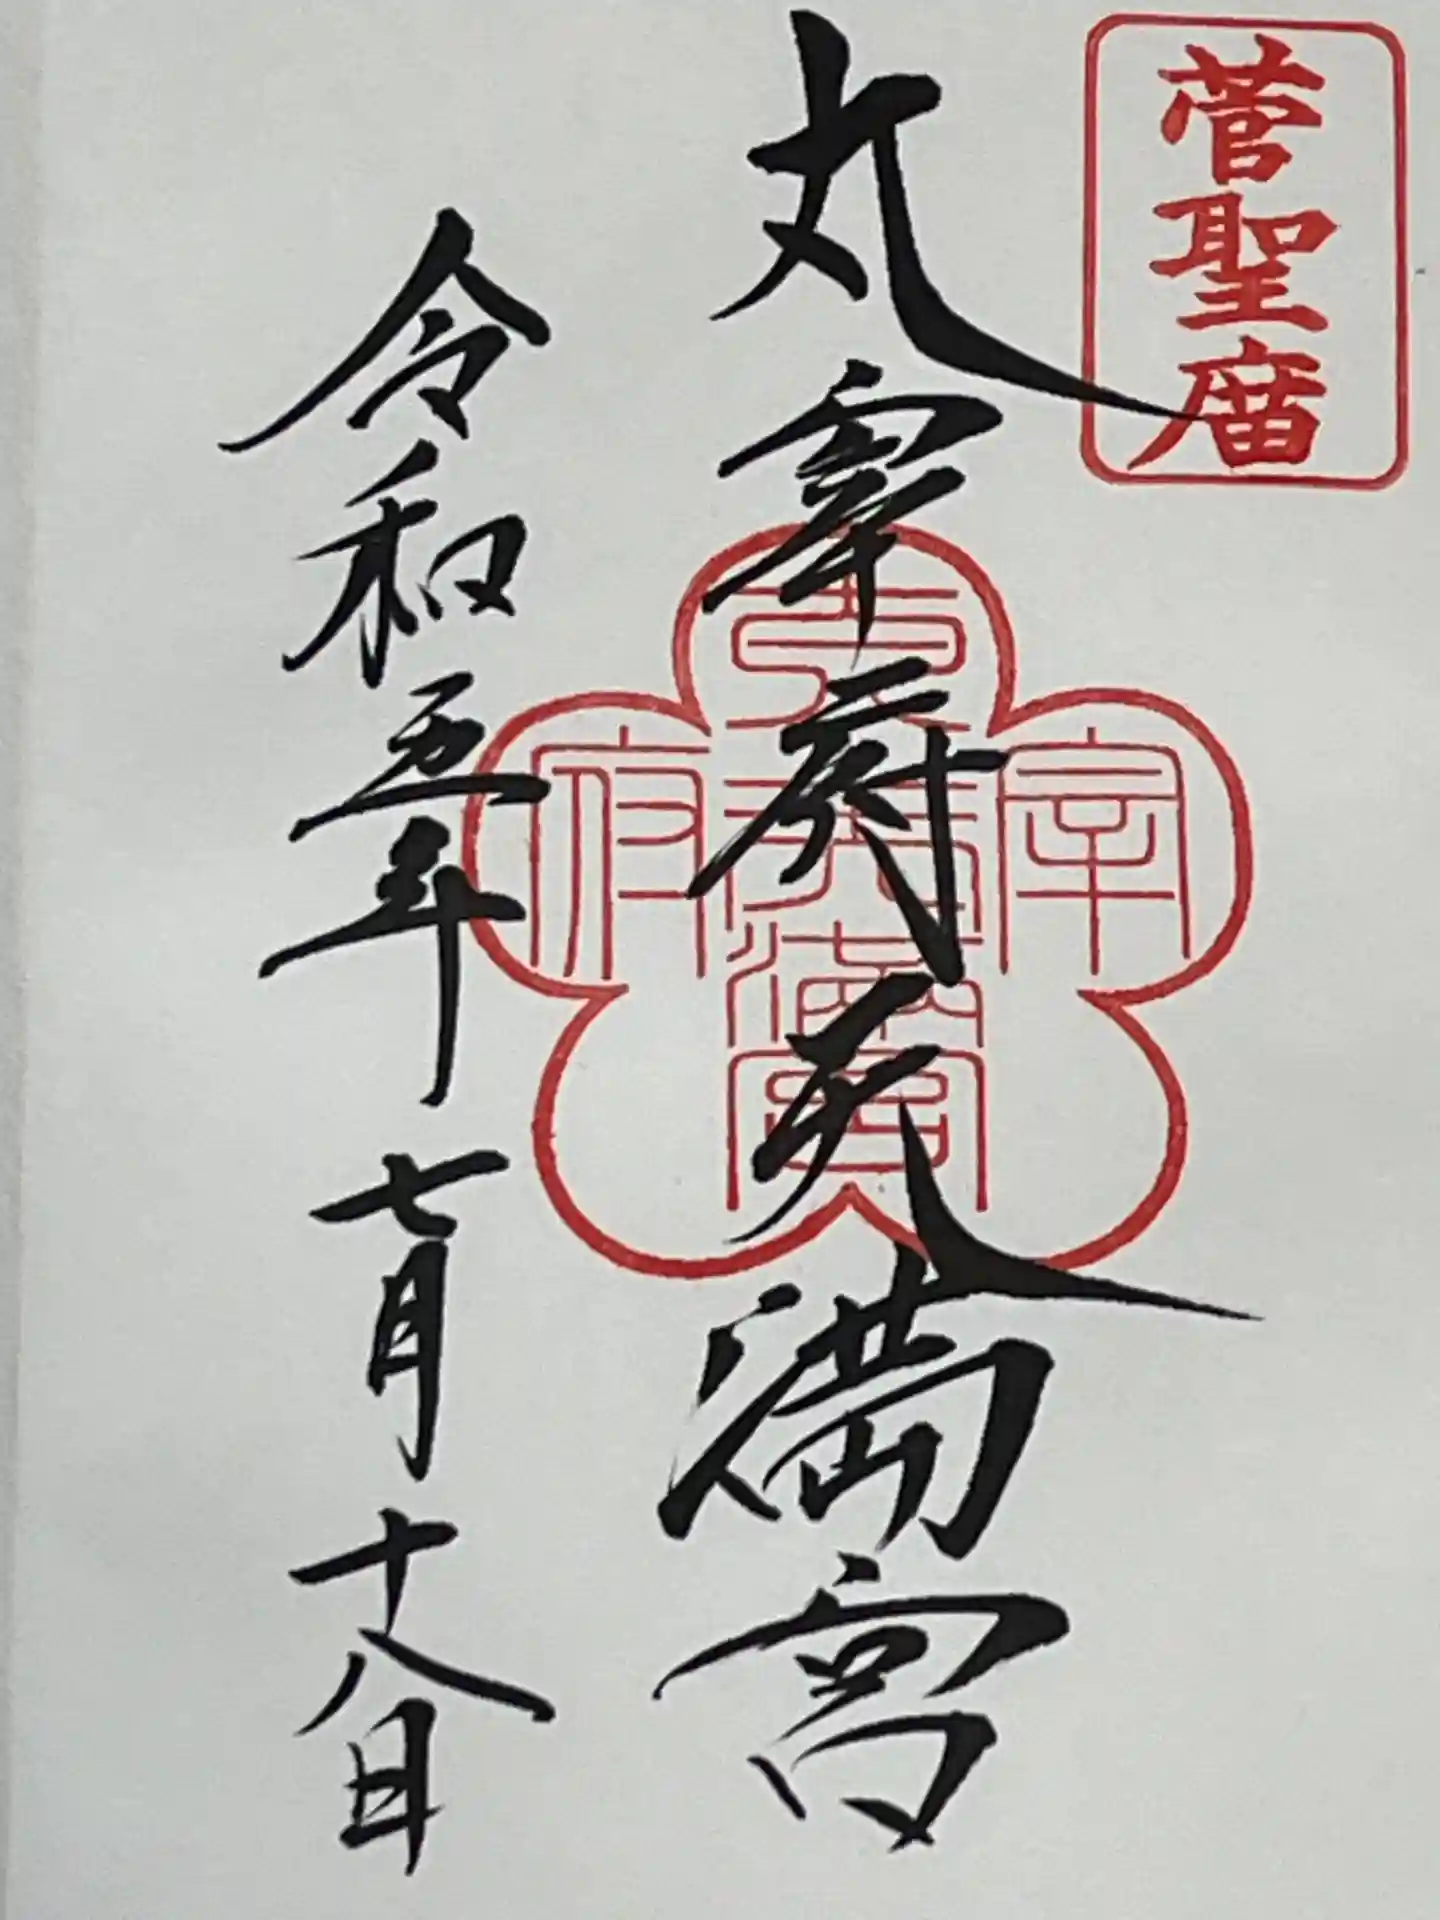 菅聖庿
太宰府天満宮
太宰府天満宮
令和五年七月十八日